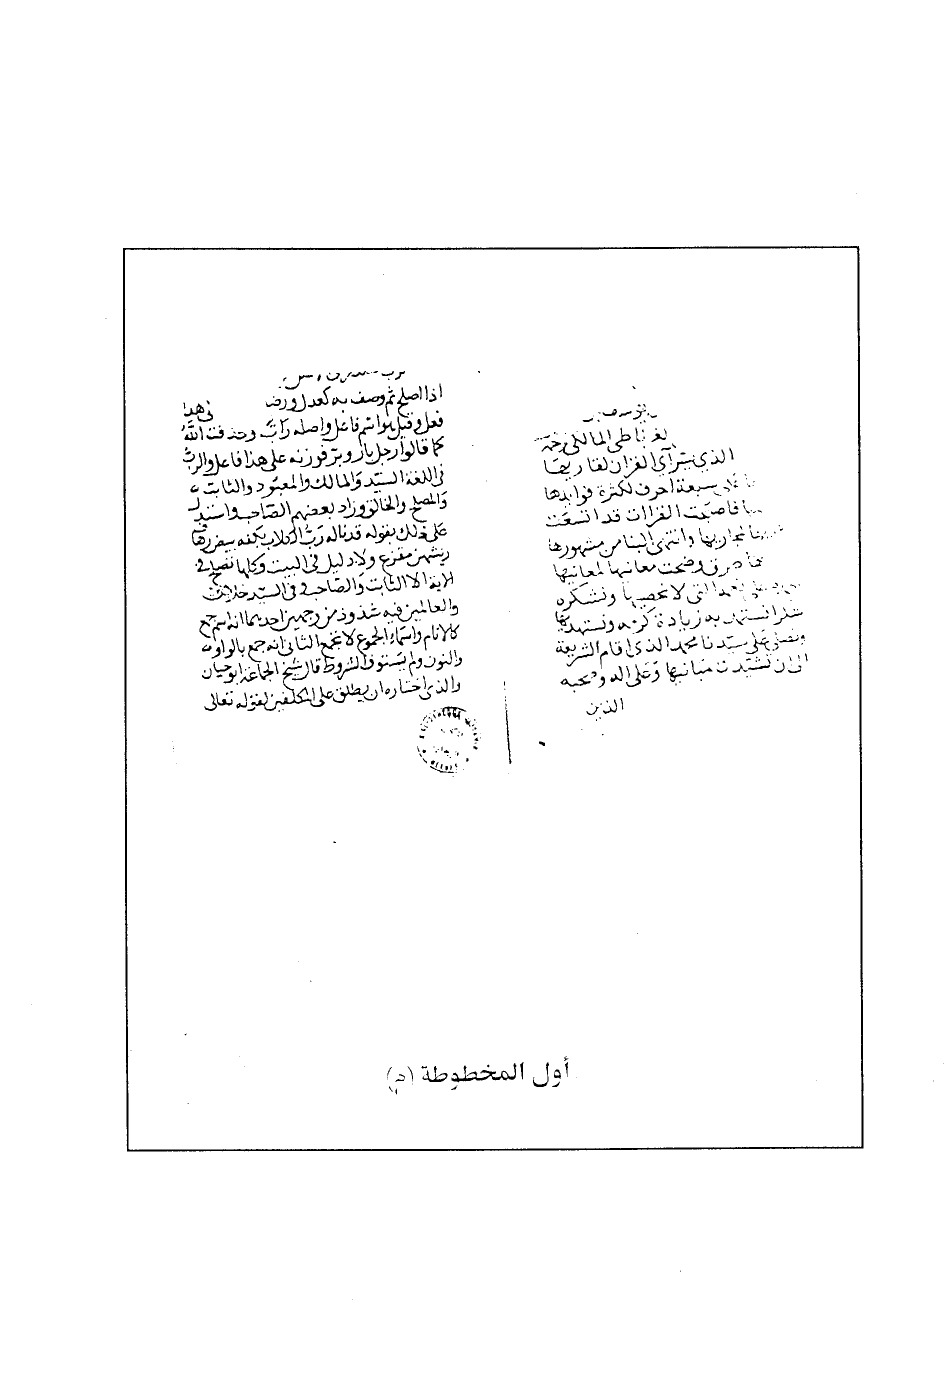 يوسف
الغرناطي المالكي
الذي يسر آي القران لقاريها
سبعة احرف لكثرة فوايدها
فاصبحت القراات قد اتسعت
مجاريها وانتهى الينا من مشهورها
ما وضحت معانيها لمعانيها
التي لا نحصيها ونشكره
شكرا نستمد به زيادة كرمه ونستهديها
ونصلي على سيدنا محمد الذي اقام الشريعة
الى ان تشيدت مبانيها وعلى اله وصحبه
الذين
اذا اصلح ثم وصف به كعدل ورضا في هذا
فعل وقيل هو اسم فاعل واصله رابّ وحذفت الفه
كما قالوا رجل بار وبر فوزنه على هذا فاعل والرب
في اللغة السيد والمالك والمعبود والثابت
والمصلح والخالق وزاد بعضهم الصاحب واستدل
على ذلك بقوله قد ناله رب الكلاب بكفه بيض رهاف
ريشهن مقزع ولا دليل في البيت وكلها تصلح في
الاية الا الثابت والصاحب في السيد خلاف
والعالمين فيه شذوذ من وجهين احدهما انه اسم جمع
كالانام واسماء الجموع لا تجمع الثاني انه جمع بالواو
والنون ولم يستوف الشروط قال شيخ الجماعة ابو حيان
والذي اختاره ان يطلق على المكلفين لقوله تعالى
أول المخطوطة (م)